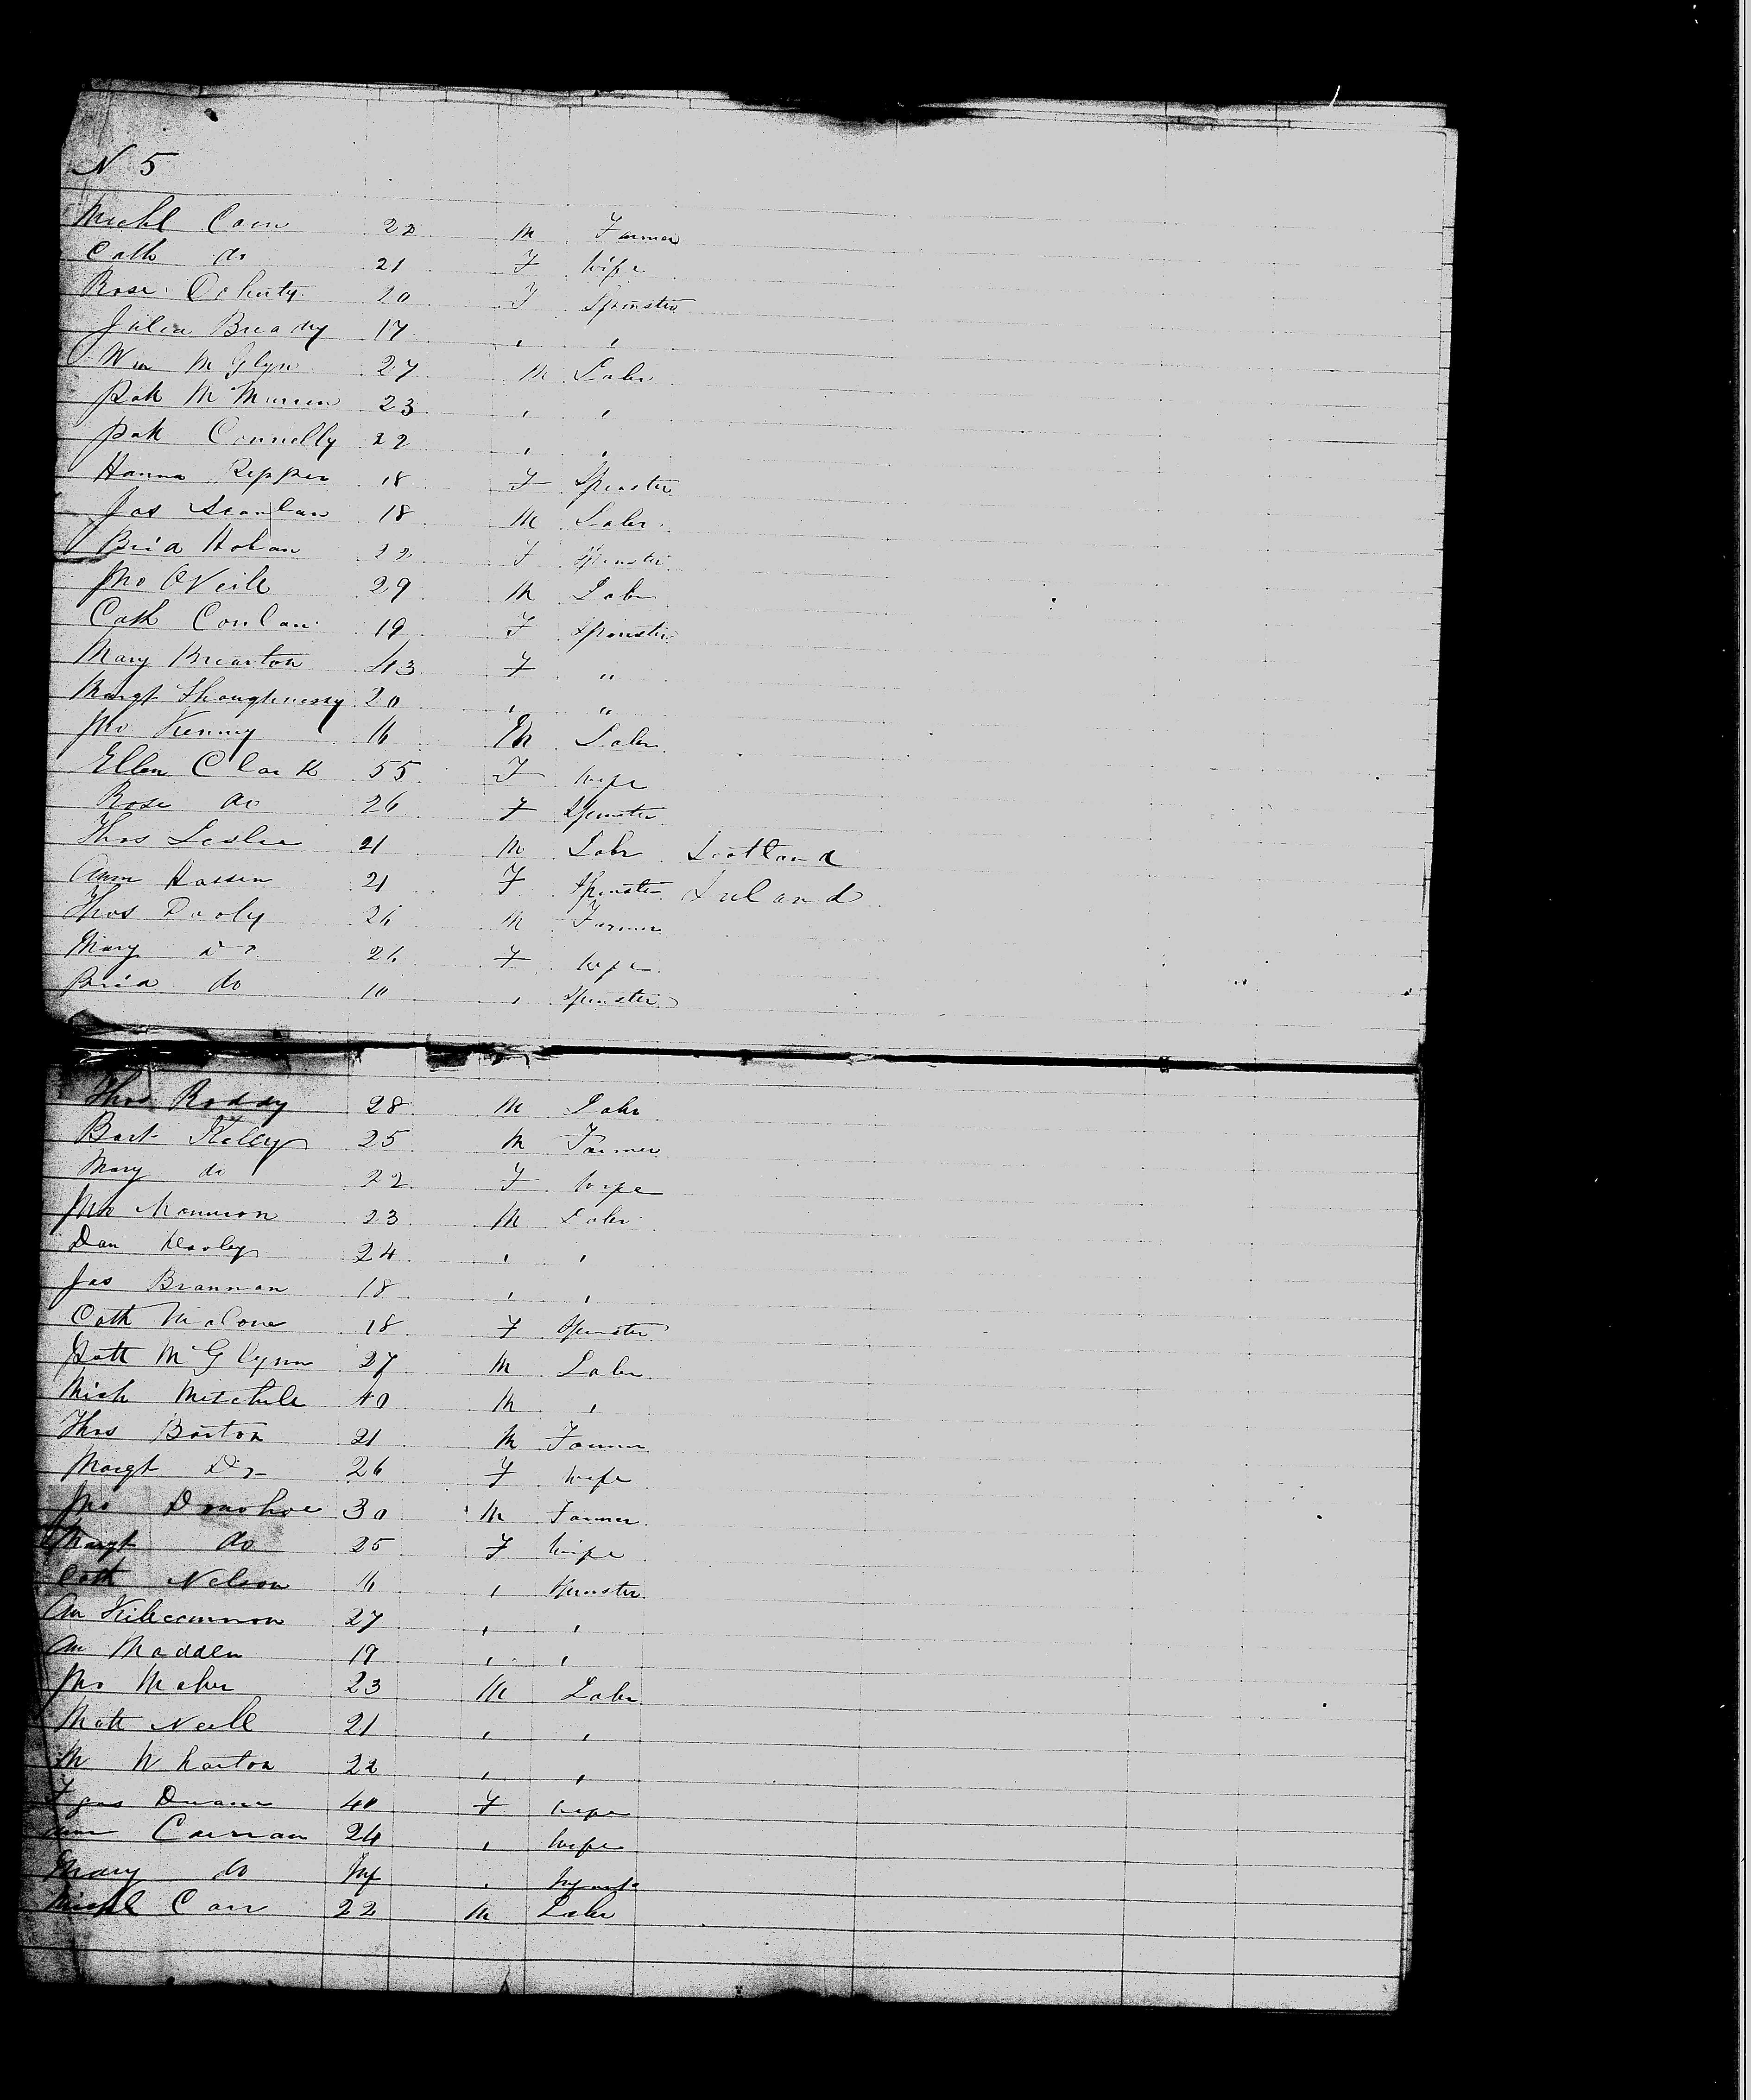 N 5
Michl Coen 22 M Farmer
Cath do 21 F Wife
Rose Doherty 20 F Spinster
Julia Bready 17 , ,
Wm McGlyn 27 M Labr
Patk 23 , ,
Patk Connelly 22 , ,
Hanna Repper 18 F Spinster
Jas Scanlan 18 M Labr
Brid Hohan 22 F Spinster
Jno ONeill 29 M Labr
Cath Conlan 19 F Spinster
Mary Brearton 43 F "
Margt Shaughnessy 20 , "
Jno Kenny 16 M Labr
Ellen Clark 55 F Wife
Rose do 26 F Spinster
Thos Leslie 21 M Labr Scotland
Ann Hassen 21 F Spinster Ireland
Thos Dooly 26 M Farmer
Mary Do 26 F Wife
Brid do 10 , Spinster
Thos Roddy 28 M Labr
Bart Kelley 25 M Farmer
Mary do 22 F Wife
Jno Mannion 23 M Labr
Dan Hooley 24 , ,
Jas Brannan 18 , ,
Cath Malone 18 F Spinster
Patt McGlynn 27 M Labr
Mich Mitchell 40 M ,
Thos Barton 21 M Farmer
Margt Do 26 F Wife
Jno Donohoe 30 M Farmer
Margt do 25 F Wife
Cath Nelson 16 , Spinster
An Kilcommon 27 , ,
An Madden 19 , ,
Jno Maher 23 M Labr
Matt Neill 21 , ,
M Wharton 22 , ,
Duane 40 F Wife
Ann Carnan 24 , Wife
Mary do Inf , Infant
Michl Carr 22 M Labr